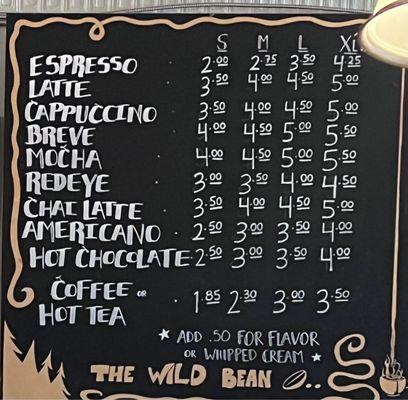 S M L XL
ESPRESSO 2.00 2.75 3.50 4.25
LATTE 3.50 4.00 4.50 5.00
CAPPUCCINO 3.50 4.00 4.50 5.00
BREVE 4.00 4.50 5.00 5.50
MOCHA 4.00 4.50 5.00 5.50
REDEYE 3.00 3.50 4.00 4.50
CHAI LATTE 3.50 4.00 4.50 5.00
AMERICANO 2.50 3.00 3.50 4.00
HOT CHOCOLATE 2.50 3.00 3.50 4.00
COFFEE OR
HOT TEA 1.85 2.30 3.00 3.50
ADD .50 FOR FLAVOR
OR WHIPPED CREAM
THE WILD BEAN